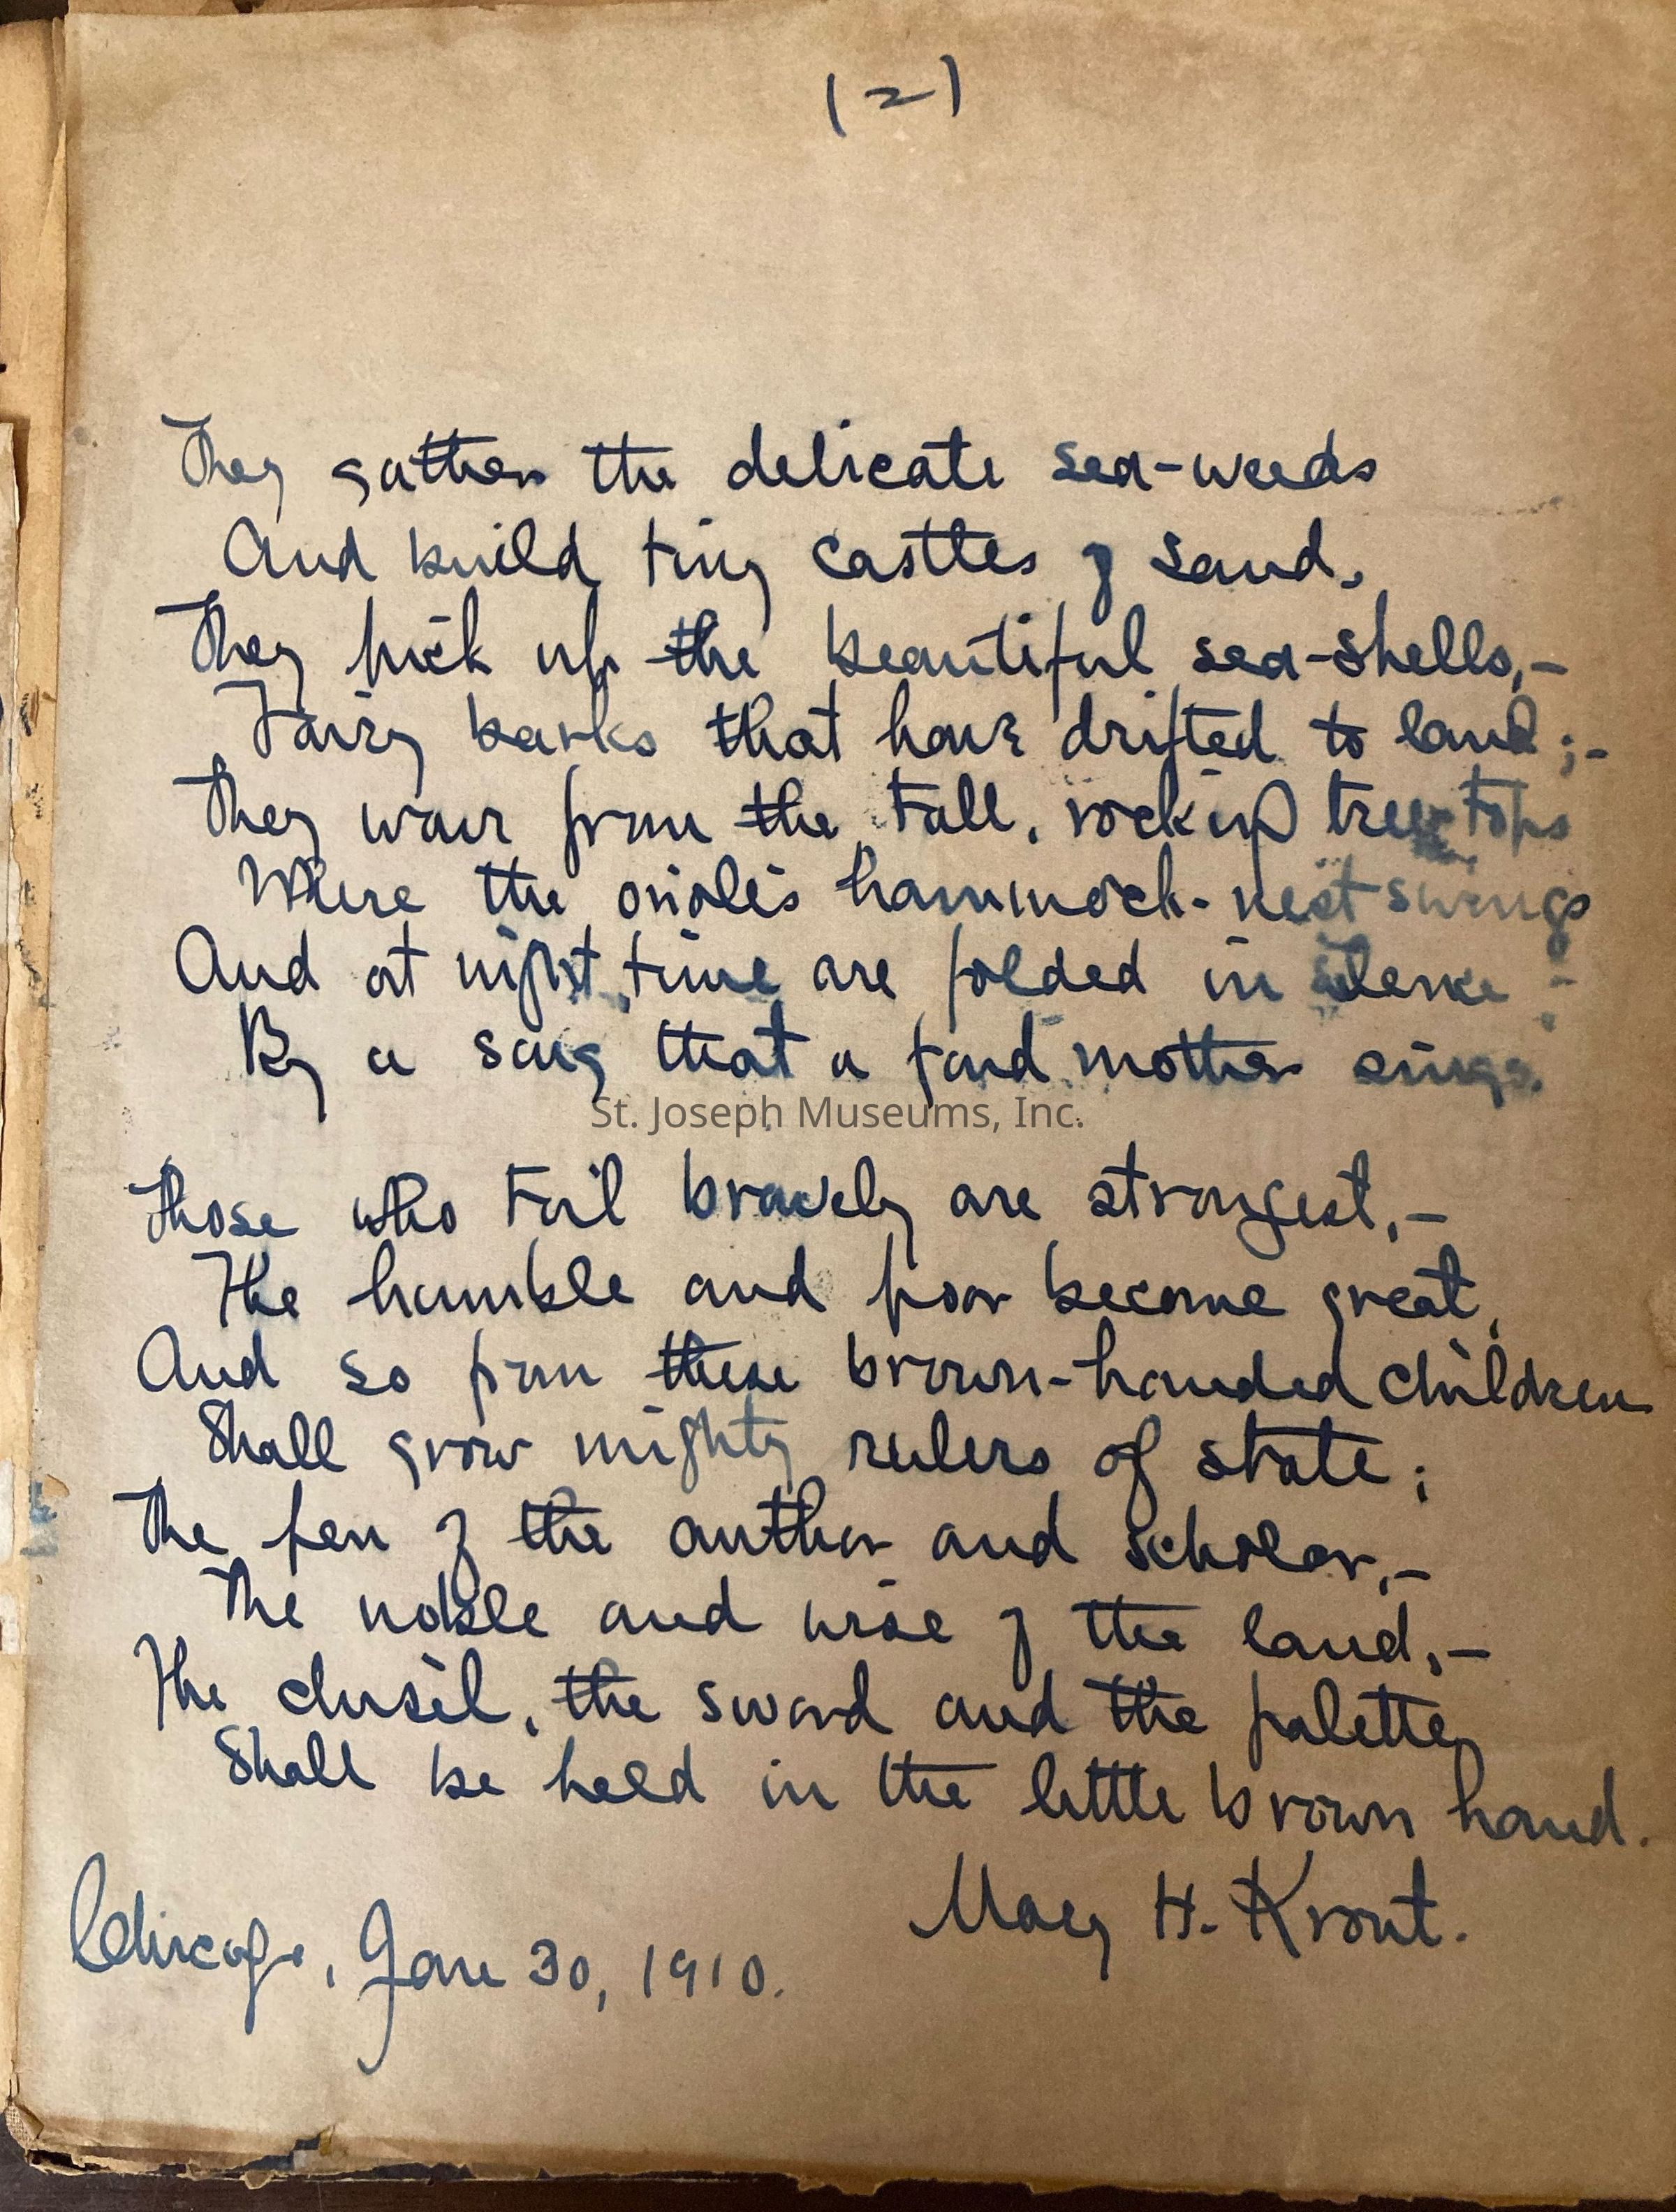 (2)
They gather the delicate sea-weeds
And build tiny castles of sand,
They pick up the beautiful sea-shells,-
Fairy barks that have drifted to land;-
They wave from the tall, rocking tree tops
Where the oriole's hammock-nest swings
And at night time are folded in silence
By a song that a fond mother sings.
St. Joseph Museums, Inc.
Those who toil bravely are strongest,-
The humble and poor become great,
And so from these brown-handed children
Shall grow mighty rulers of state;
The pen of the author and scholar,-
The noble and wise of the land,-
The chisel, the sword and the palette,
Shall be held in the little brown hand.
Mary H. Krout.
Chicago, Jan 30, 1910.